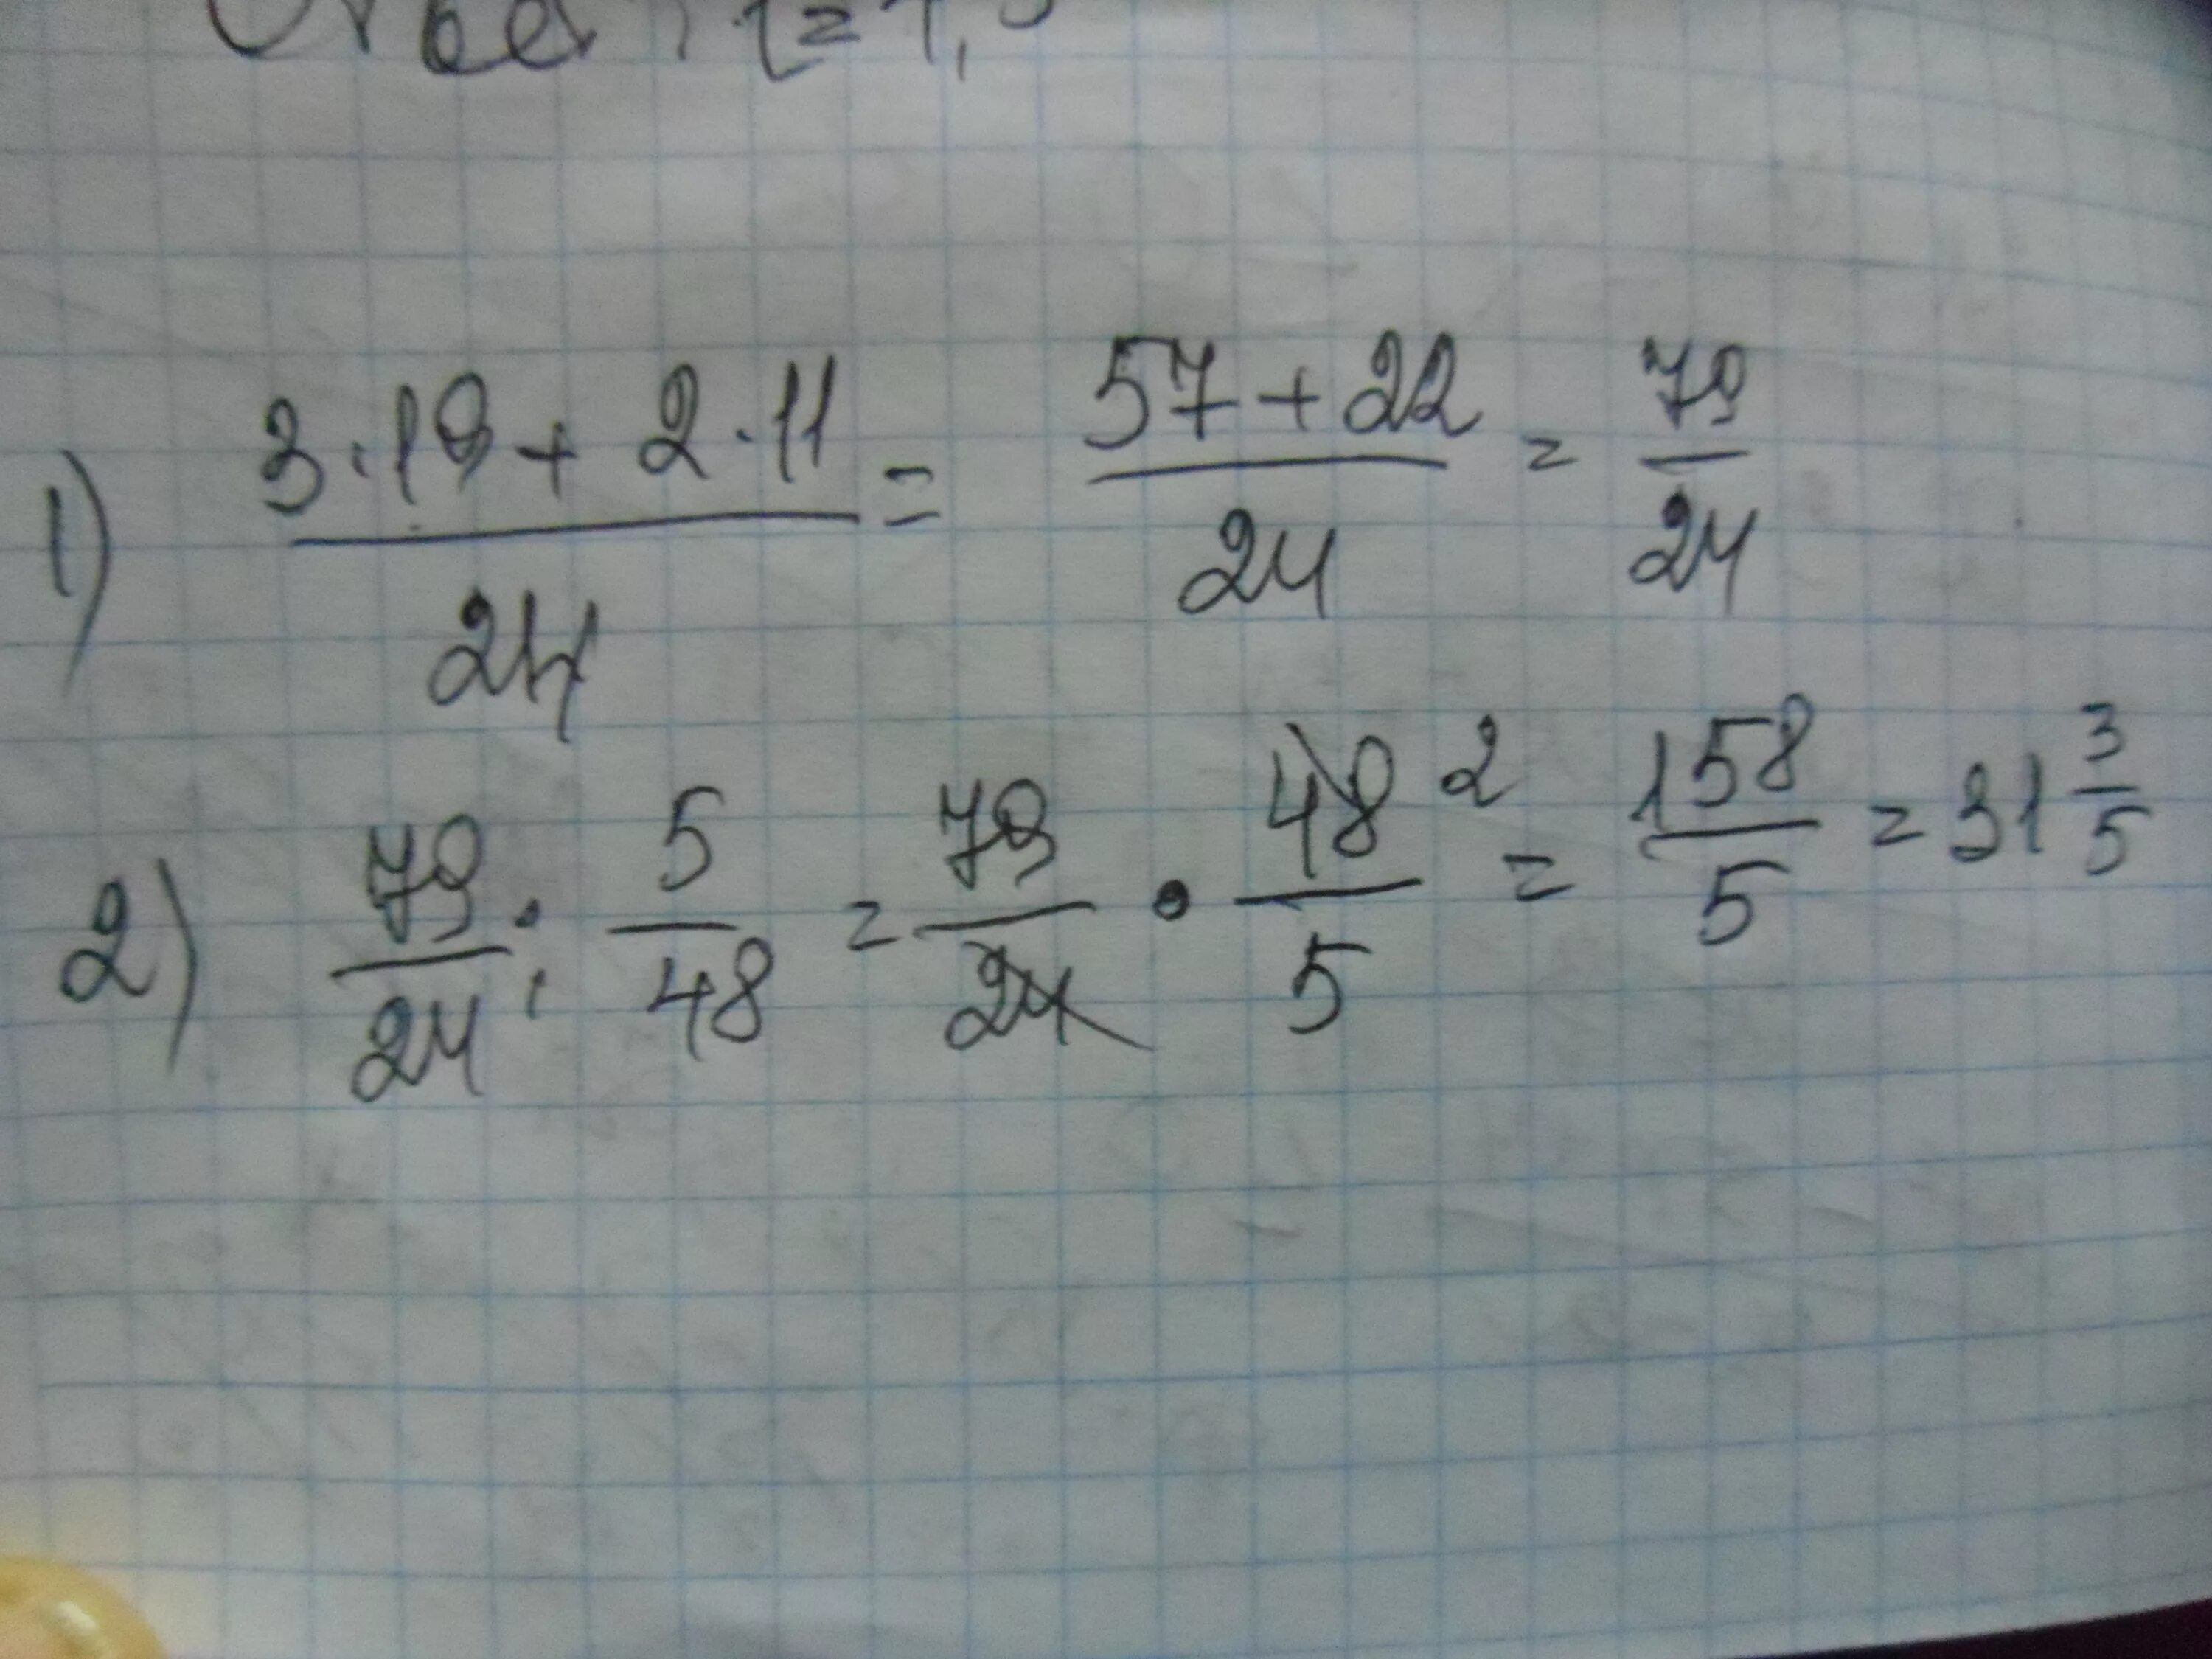 Ответ: t = 1,5
1) (3·19 + 2·11)/24 = (57 + 22)/24 = 79/24
2) 79/24 : 5/48 = 79/24 · 48/5 2 = 158/5 = 31 3/5